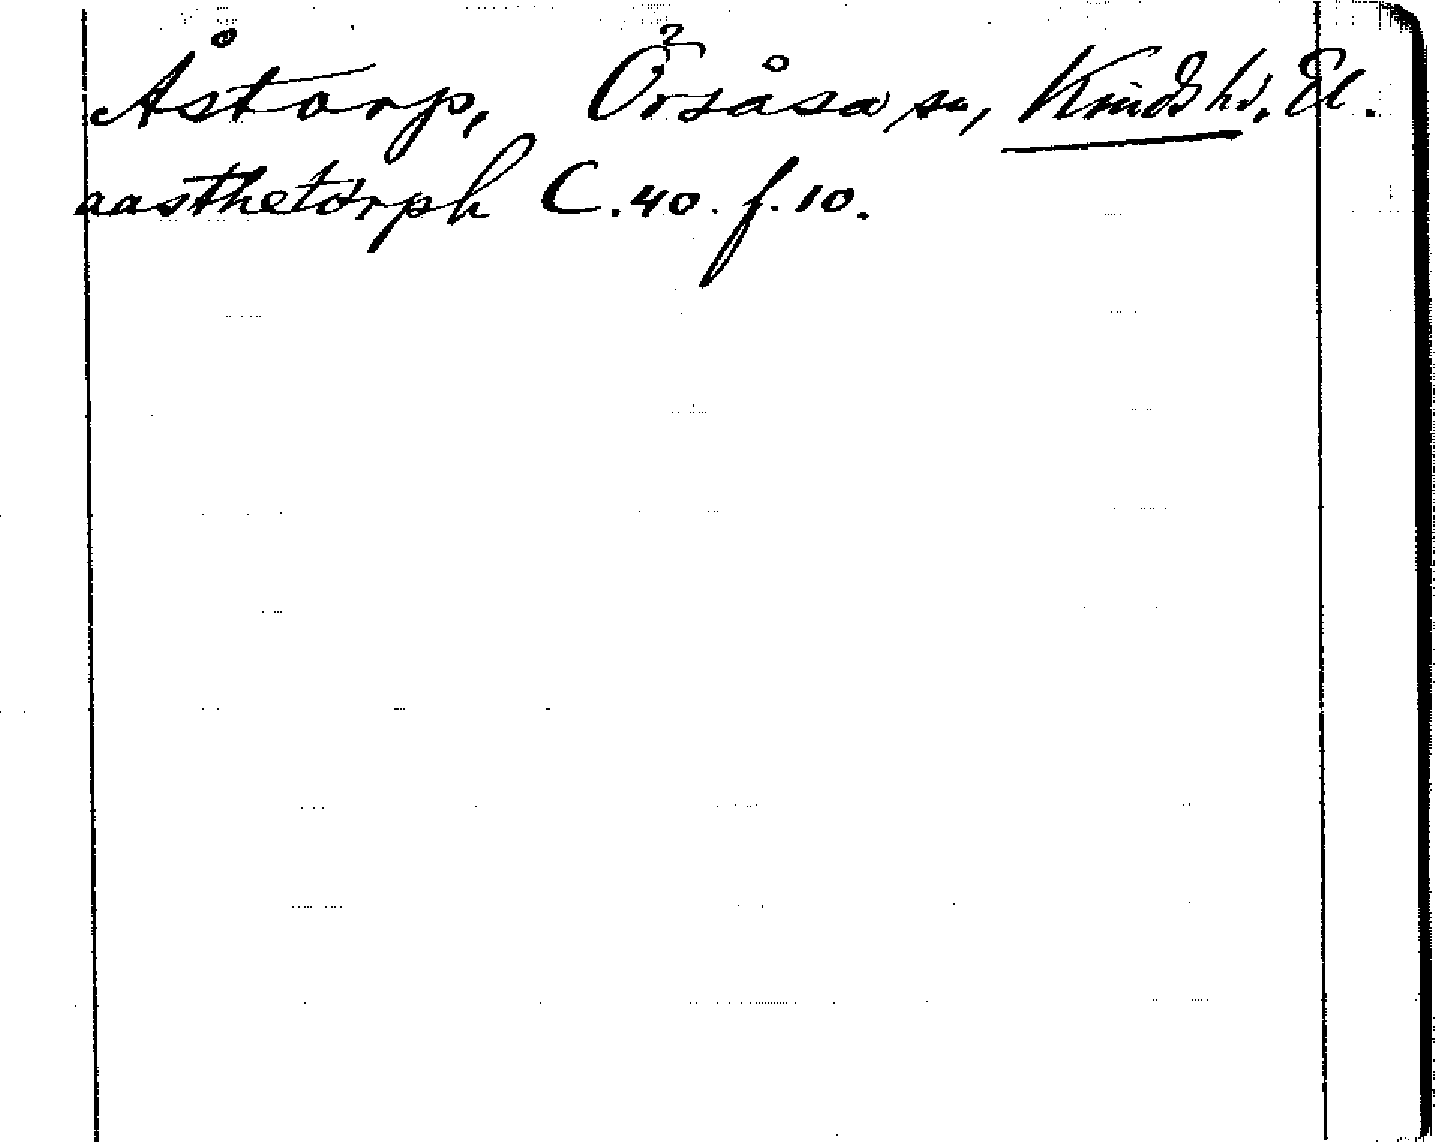 Åstorp, Örsåsa sn, Kinds hd, Äl.
aasthetorph C. 40. f. 10.